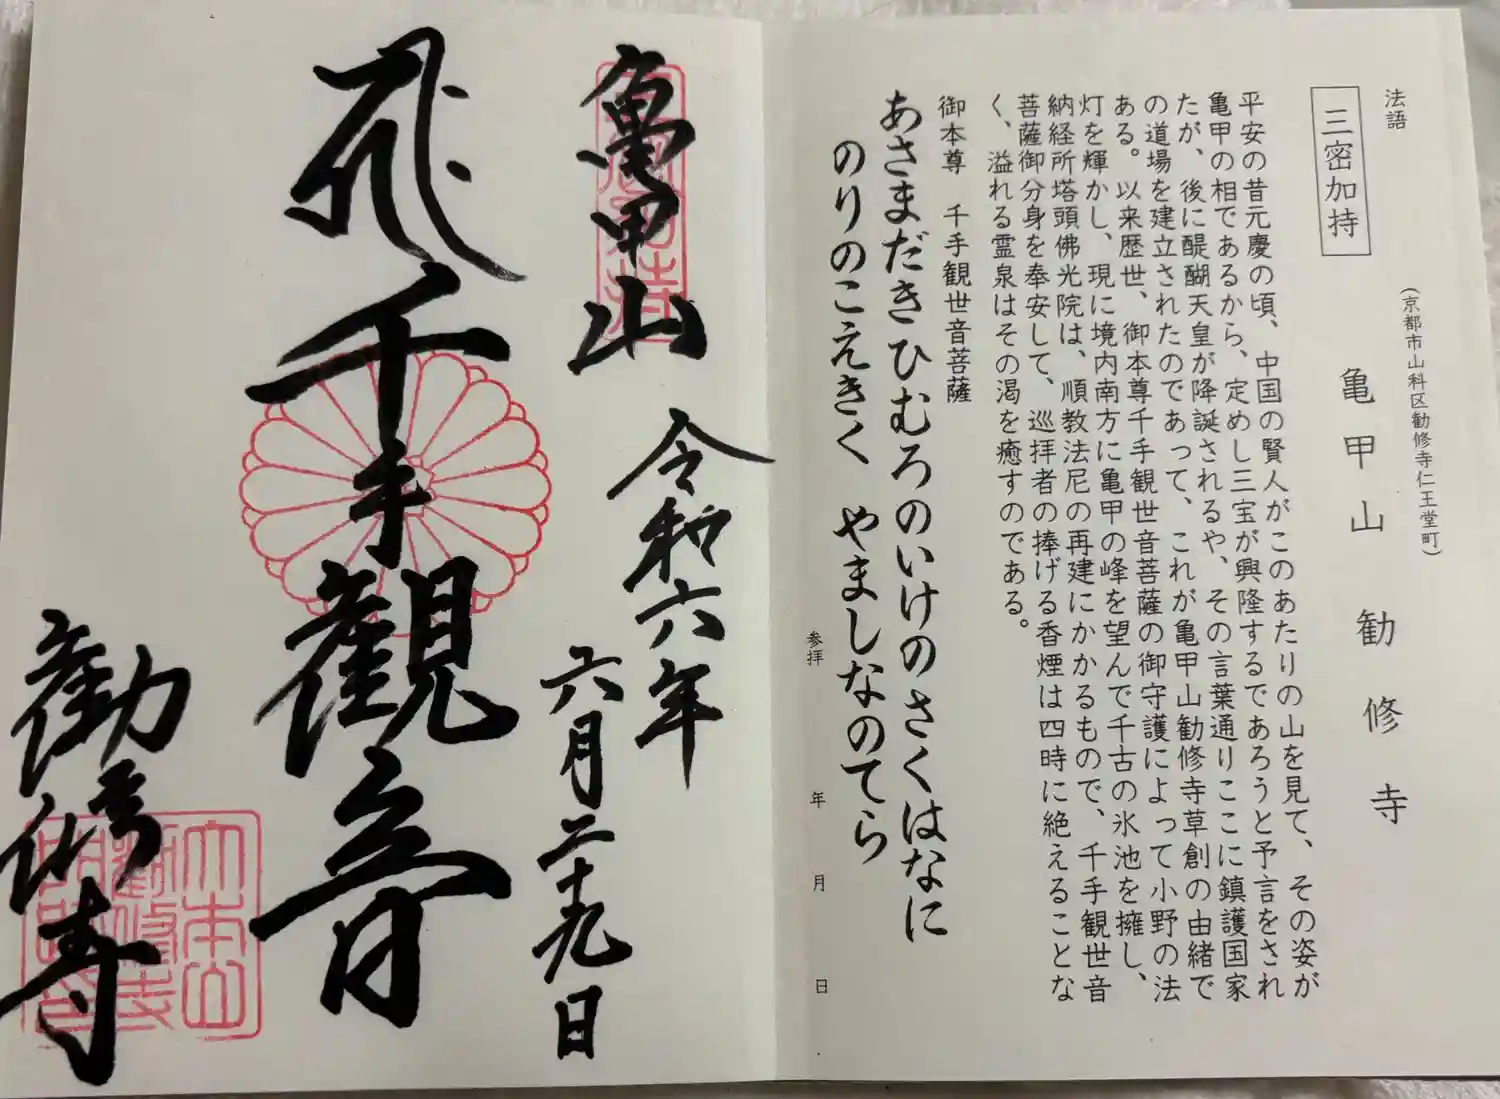 法語
三密加持
(京都市山科区勧修寺仁王堂町)
亀甲山 勧修寺
平安の昔元慶の頃、中国の賢人がこのあたりの山を見て、その姿が
亀甲の相であるから、定めし三宝が興隆するであろうと予言をされ
たが、後に醍醐天皇が降誕されるや、その言葉通りここに鎮護国家
の道場を建立されたのであって、これが亀甲山勧修寺草創の由緒で
ある。以来歴世、御本尊千手観世音菩薩の御守護によって小野の法
灯を輝かし、現に境内南方に亀甲の峰を望んで千古の氷池を擁し、
納経所塔頭佛光院は、順教法尼の再建にかかるもので、千手観世音
菩薩御分身を奉安して、巡拝者の捧げる香煙は四時に絶えることな
く、溢れる霊泉はその渇を癒すのである。
御本尊 千手観世音菩薩
あさまだきひむろのいけのさくはなに
のりのこえきく やましなのてら
参拝 年 月 日
亀甲山
令和六年
六月二十九日
千手觀音
勧修寺